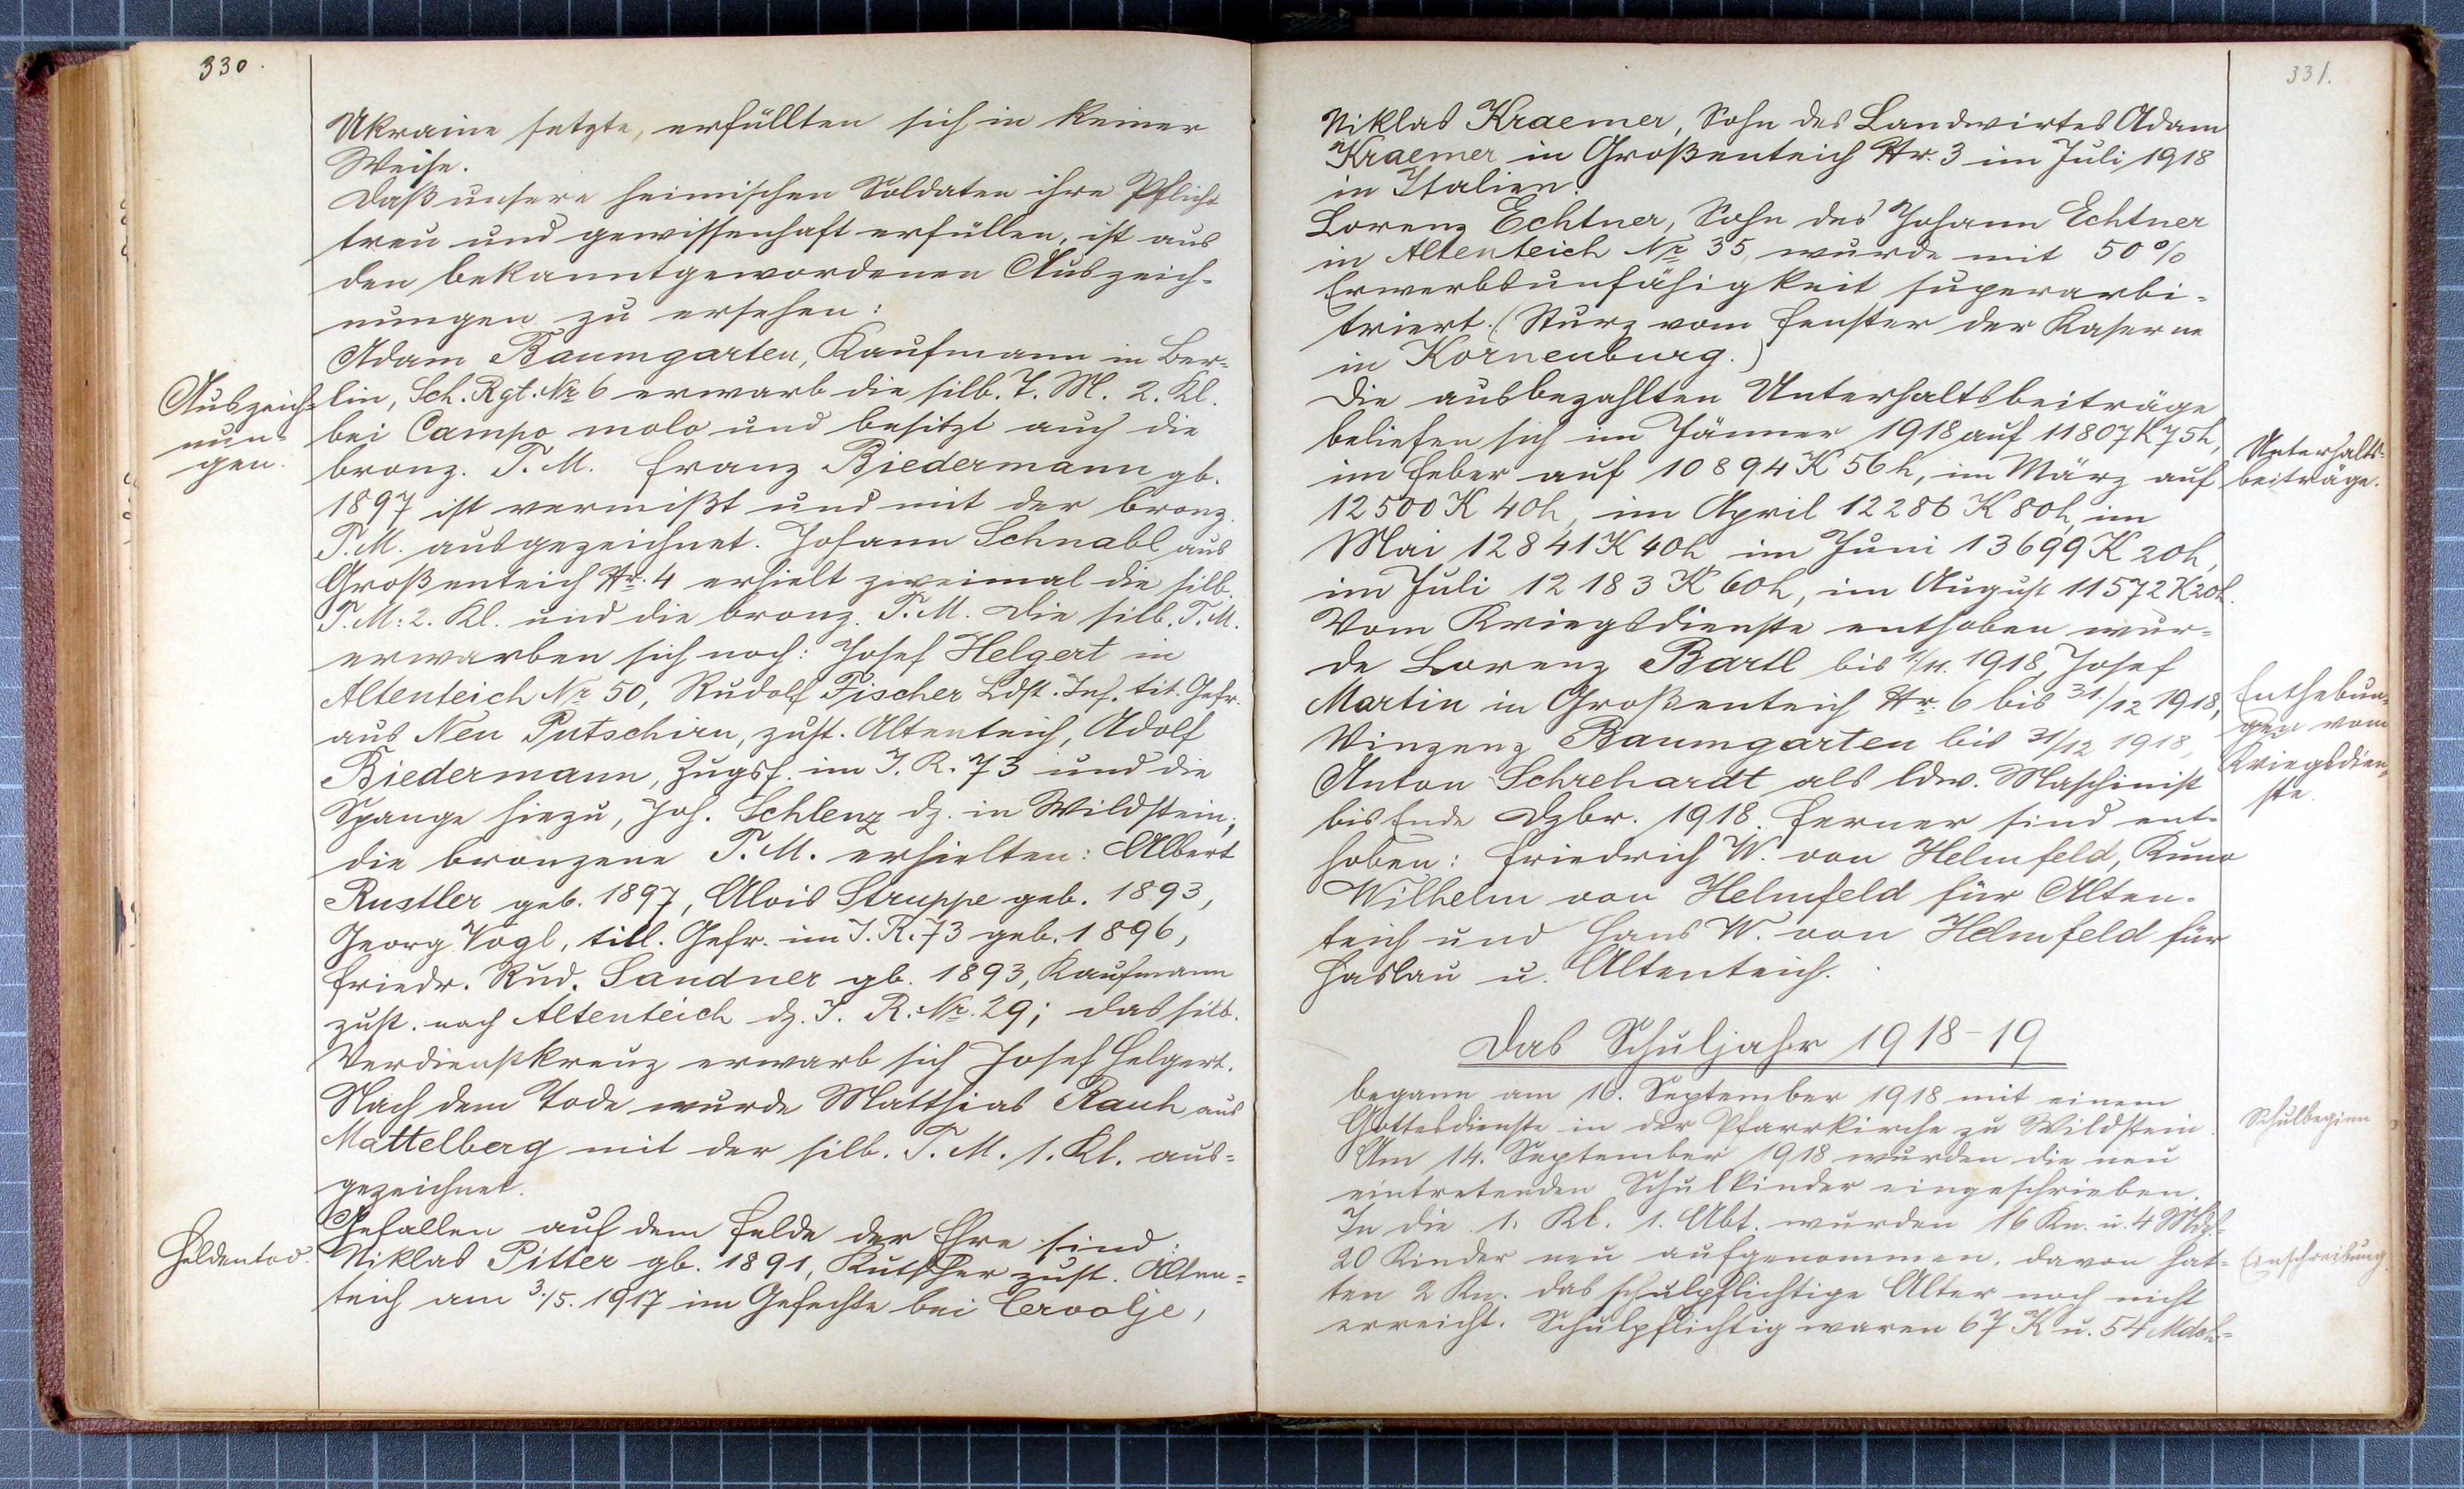 330.
Ukraine setzte, erfüllten sich in keiner
Weise.
Daß unsere heimischen Soldaten ihre Pflicht
treu und gewissenhaft erfüllen, ist aus
den bekanntgewordenen Auszeich-
nungen zu ersehen:
Adam Baumgarten, Kaufmann in Ber-
Auszeich-
nun-
gen.
lin, Sch. Rgt. Nr 6 erwarb die silb. T. M. 2. Kl.
bei Campo molo und besitzt auch die
bronz. T. M. Franz Biedermann gb.
1897 ist vermißt und mit der bronz.
T. M. ausgezeichnet. Johann Schnabl aus
Großenteich Nr. 4 erhielt zweimal die silb.
T. M. 2. Kl. und die bronz. T. M. Die silb. T. M.
erwarben sich noch: Josef Helgert in
Altenteich Nr 50, Rudolf Fischer Ldst. Inf. tit. Gefr.
aus Neu Putschirn, zust. Altenteich, Adolf
Biedermann, Zugsf. im I. R. 73 und die
Spange hiezu, Joh. Schlenz dz. in Wildstein;
die bronzene T. M. erhielten: Albert
Rustler geb. 1897, Alois Struppe geb. 1893,
Georg Vogl, titl. Gefr. im I. R. 73 geb. 1896,
Friedr. Rud. Sandner gb. 1893, Kaufmann
zust. nach Altenteich dz. I. R. Nr. 29; das silb.
Verdienstkreuz erwarb sich Josef Helgert.
Nach dem Tode wurde Matthias Rauh aus
Mattelberg mit der silb. T. M. 1. Kl. aus-
gezeichnet.
Gefallen auf dem Felde der Ehre sind:
Heldentod.
Niklas Pitter gb. 1891, Kutscher zust. Alten-
teich am 3./5. 1917 im Gefechte bei Cervolje,
331.
Niklas Kraemer, Sohn des Landwirtes Adam
Kraemer in Großenteich Nr. 3 im Juli 1918
in Italien.
Lorenz Echtner, Sohn des Johann Echtner
in Altenteich Nr 35, wurde mit 50%
Erwerbsunfähigkeit superarbi-
triert. (Sturz vom Fenster der Kaserne
in Kornenburg.)
Die ausbezahlten Unterhaltsbeiträge
beliefen sich im Jänner 1918 auf 11807 K 75 h,
Unterhalts-
beiträge.
im Feber auf 10894 K 56 h, im März auf
12500 K 40h, im April 12286 K 80h, im
Mai 12841 K 40h im Juni 13699 K 20h,
im Juli 12183 K 60h, im August 11572 K 20h.
Vom Kriegsdienste enthoben wur-
de Lorenz Bartl bis 1./11. 1918, Josef
Enthebun-
gen vom
Kriegsdien-
ste.
Martin in Großenteich Nr. 6 bis 31./12 1918,
Vinzenz Baumgarten bis 31/12 1918,
Anton Schrehardt als ldw. Maschinist
bis Ende Dzbr. 1918. Ferner sind ent-
hoben: Friedrich W. von Helmfeld, Kuno
Wilhelm von Helmfeld für Alten-
teich und Hans W. von Helmfeld für
Haslau u. Altenteich.
Das Schuljahr 1918-19
begann am 16. September 1918 mit einem
Schulbeginn
Gottesdienste in der Pfarrkirche zu Wildstein.
Am 14. September 1918 wurden die neu
eintretenden Schulkinder eingeschrieben.
In die 1. Kl. 1. Abt. wurden 16 Kn. u. 4 Mdch.=
Einschreibung
20 Kinder neu aufgenommen, davon hat-
ten 2 Kn. das schulpflichtige Alter noch nicht
erreicht. Schulpflichtig waren 67 K u. 54 Mdch.=